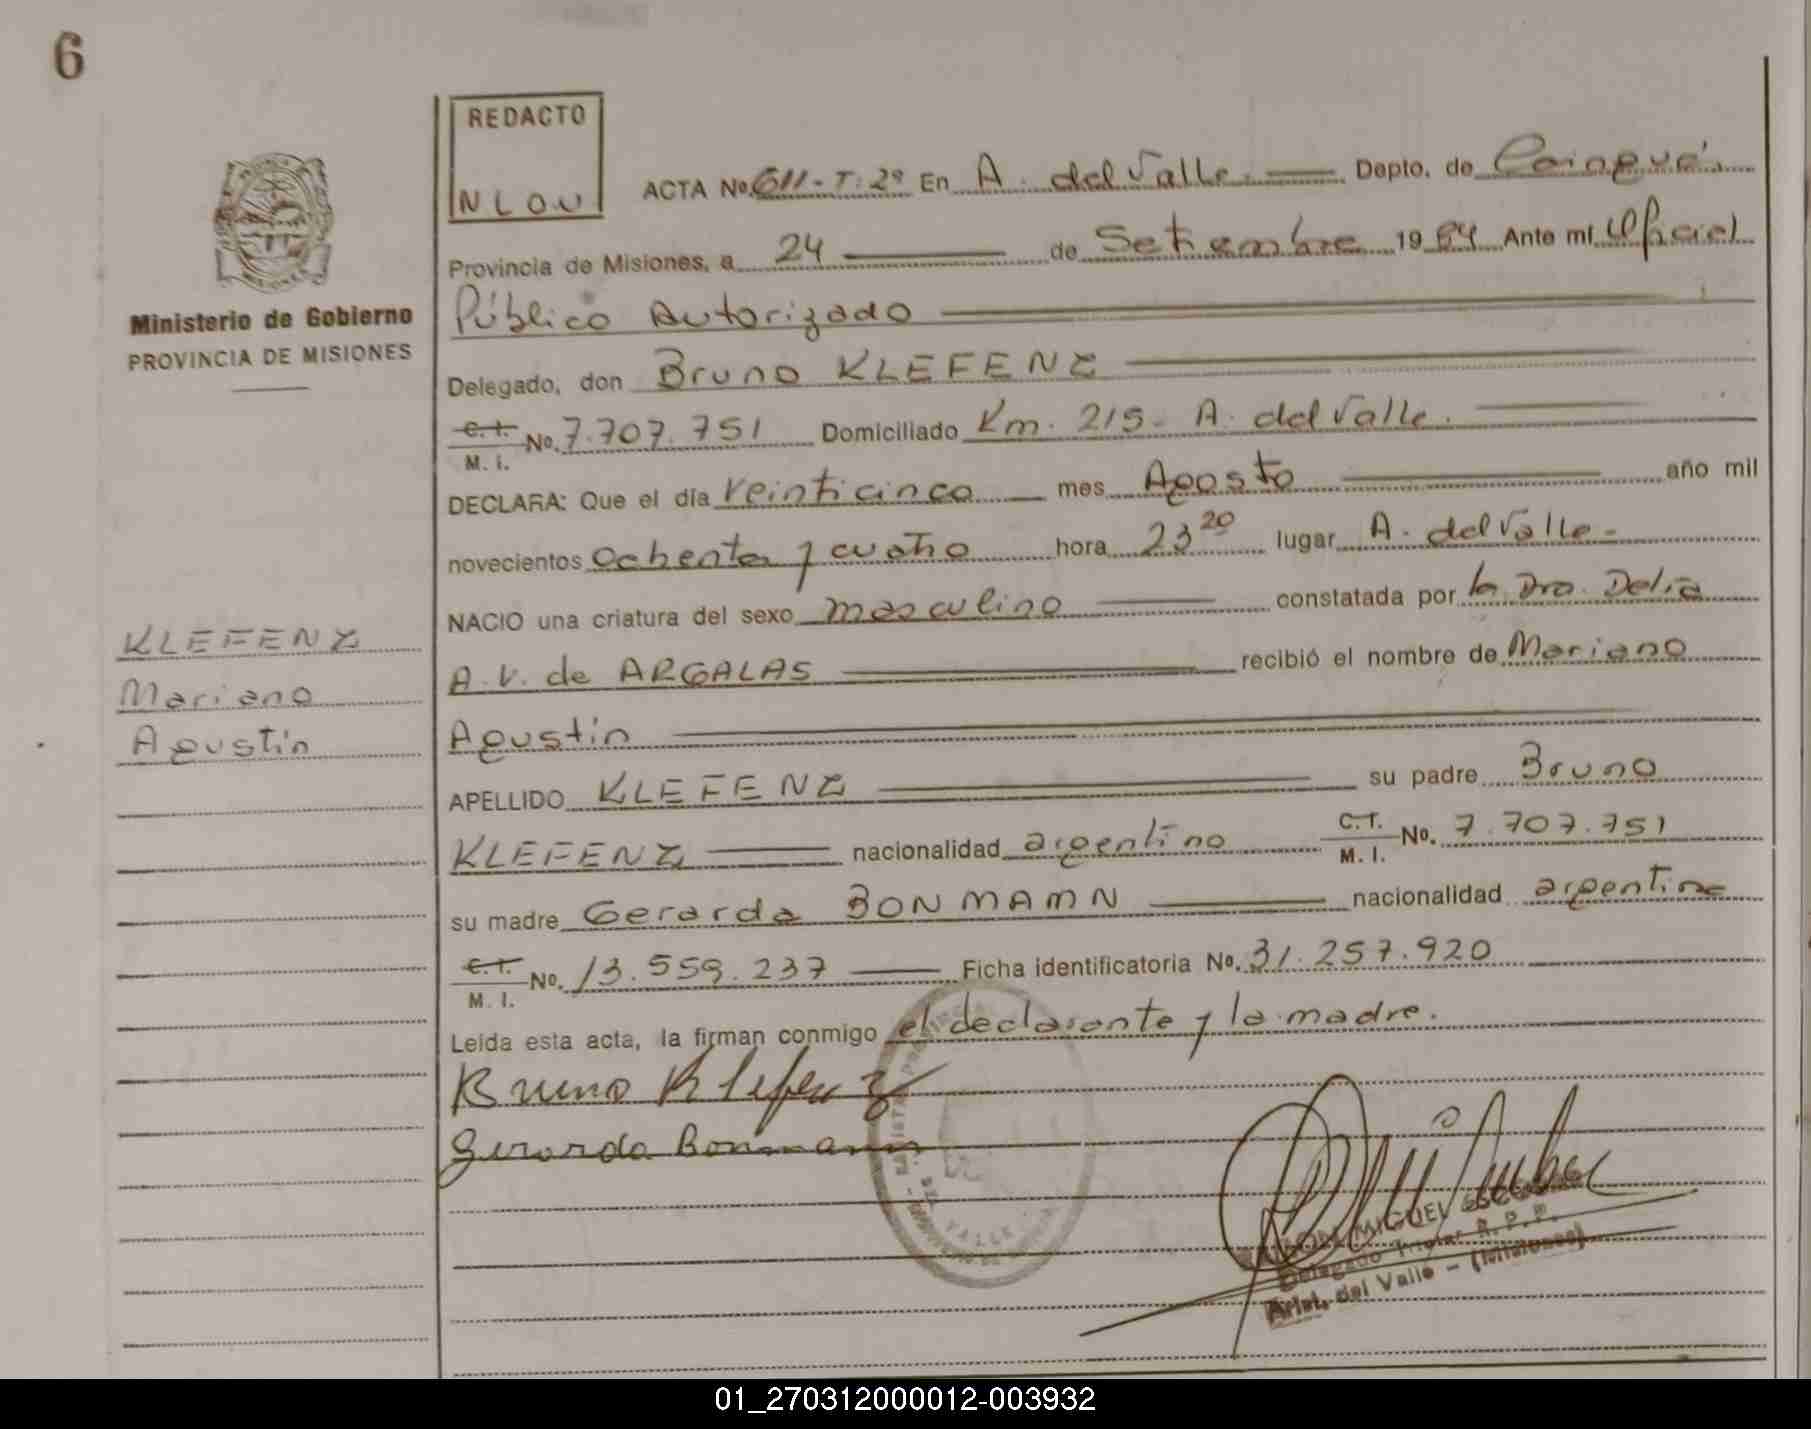 6
REDACTO
NLOU
ACTA No. 611-T:2º En A. del Valle. Depto. de Cainguás
Provincia de Misiones, a 24 de Setiembre 1984 Ante mí Oficial
Público Autorizado
Ministerio de Gobierno
PROVINCIA DE MISIONES
Delegado, don Bruno KLEFENZ
C.I. M.I. No. 7.707.751 Domiciliado Km. 215- A. del Valle.
DECLARA: Que el día veinticinco mes Agosto año mil
novecientos ochenta y cuatro hora 23 20 lugar A. del Valle-
NACIO una criatura del sexo masculino constatada por la Dra. Delia
A.V. de ARGALAS recibió el nombre de Mariano
Agustín
KLEFENZ
Mariano
Agustín
APELLIDO KLEFENZ su padre Bruno
KLEFENZ nacionalidad argentino C.I. M.I. No. 7.707.751
su madre Gerarda BONMAMN nacionalidad argentina
C.I. M.I. No. 13.559.237 Ficha identificatoria No. 31.257.920
Leida esta acta, la firman conmigo el declarante y la madre.
Bruno Klefenz
Gerarda Bonmann
VALLE
MIGUEL
Delegado Titular R.P.P.
Arist. del Valle - (Misiones)
01_270312000012-003932